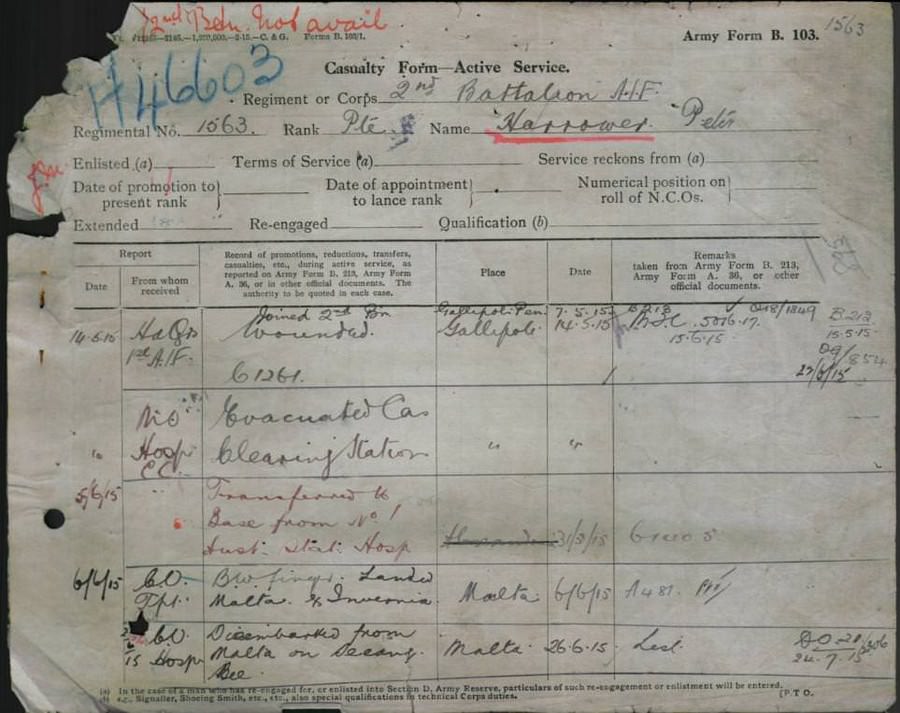 2nd Btn. Not avail
1563
Forms B. 103/1.
Army Form B. 103.
H46603
Casualty Form—Active Service.
Regiment or Corps 2nd Battalion A.I.F.
Regimental No. 1563. Rank Pte Name Harrower. Peter
Enlisted (a) Terms of Service (a) Service reckons from (a)
Date of promotion to present rank } Date of appointment to lance rank } Numerical position on roll of N.C.Os. }
Extended Re-engaged Qualification (b)
Report
Date
From whom received
Record of promotions, reductions, transfers,
casualties, etc., during active service, as
reported on Army Form B. 213, Army Form
A. 36, or in other official documents. The
authority to be quoted in each case.
Place
Date
Remarks
taken from Army Form B. 213,
Army Form A. 36, or other
official documents.
Joined 2nd Bn Gallipoli Pen. 7.5.15 B213
14.5.15 HdQrs Wounded. Gallipoli 14.5.15 B213
1st A.I.F. 15.6.15 15.5.15
C1261.
Evacuated Cas
" Hosp Clearing Station " "
5/6/15 Transferred to
Base from No. 1
Aust. Stat. Hosp 31/5/15
6/6/15 CO. BW finger. Landed
Tpt. Malta. Malta 6/6/15 A481
CO. Disembarked from
15 Hosp Malta on Malta 26.6.15 List
24.7.15
(a) In the case of a man who has re-engaged for, or enlisted into Section D, Army Reserve, particulars of such re-engagement or enlistment will be entered.
(b) e.g., Signaller, Shoeing Smith, etc., etc., also special qualifications in technical Corps duties. [P.T.O.